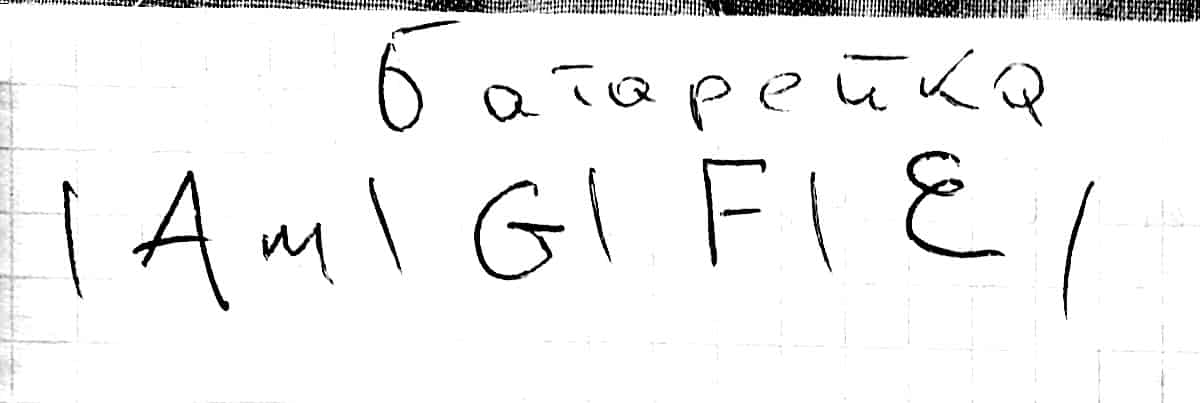 батарейка
| Am | G | F | E |